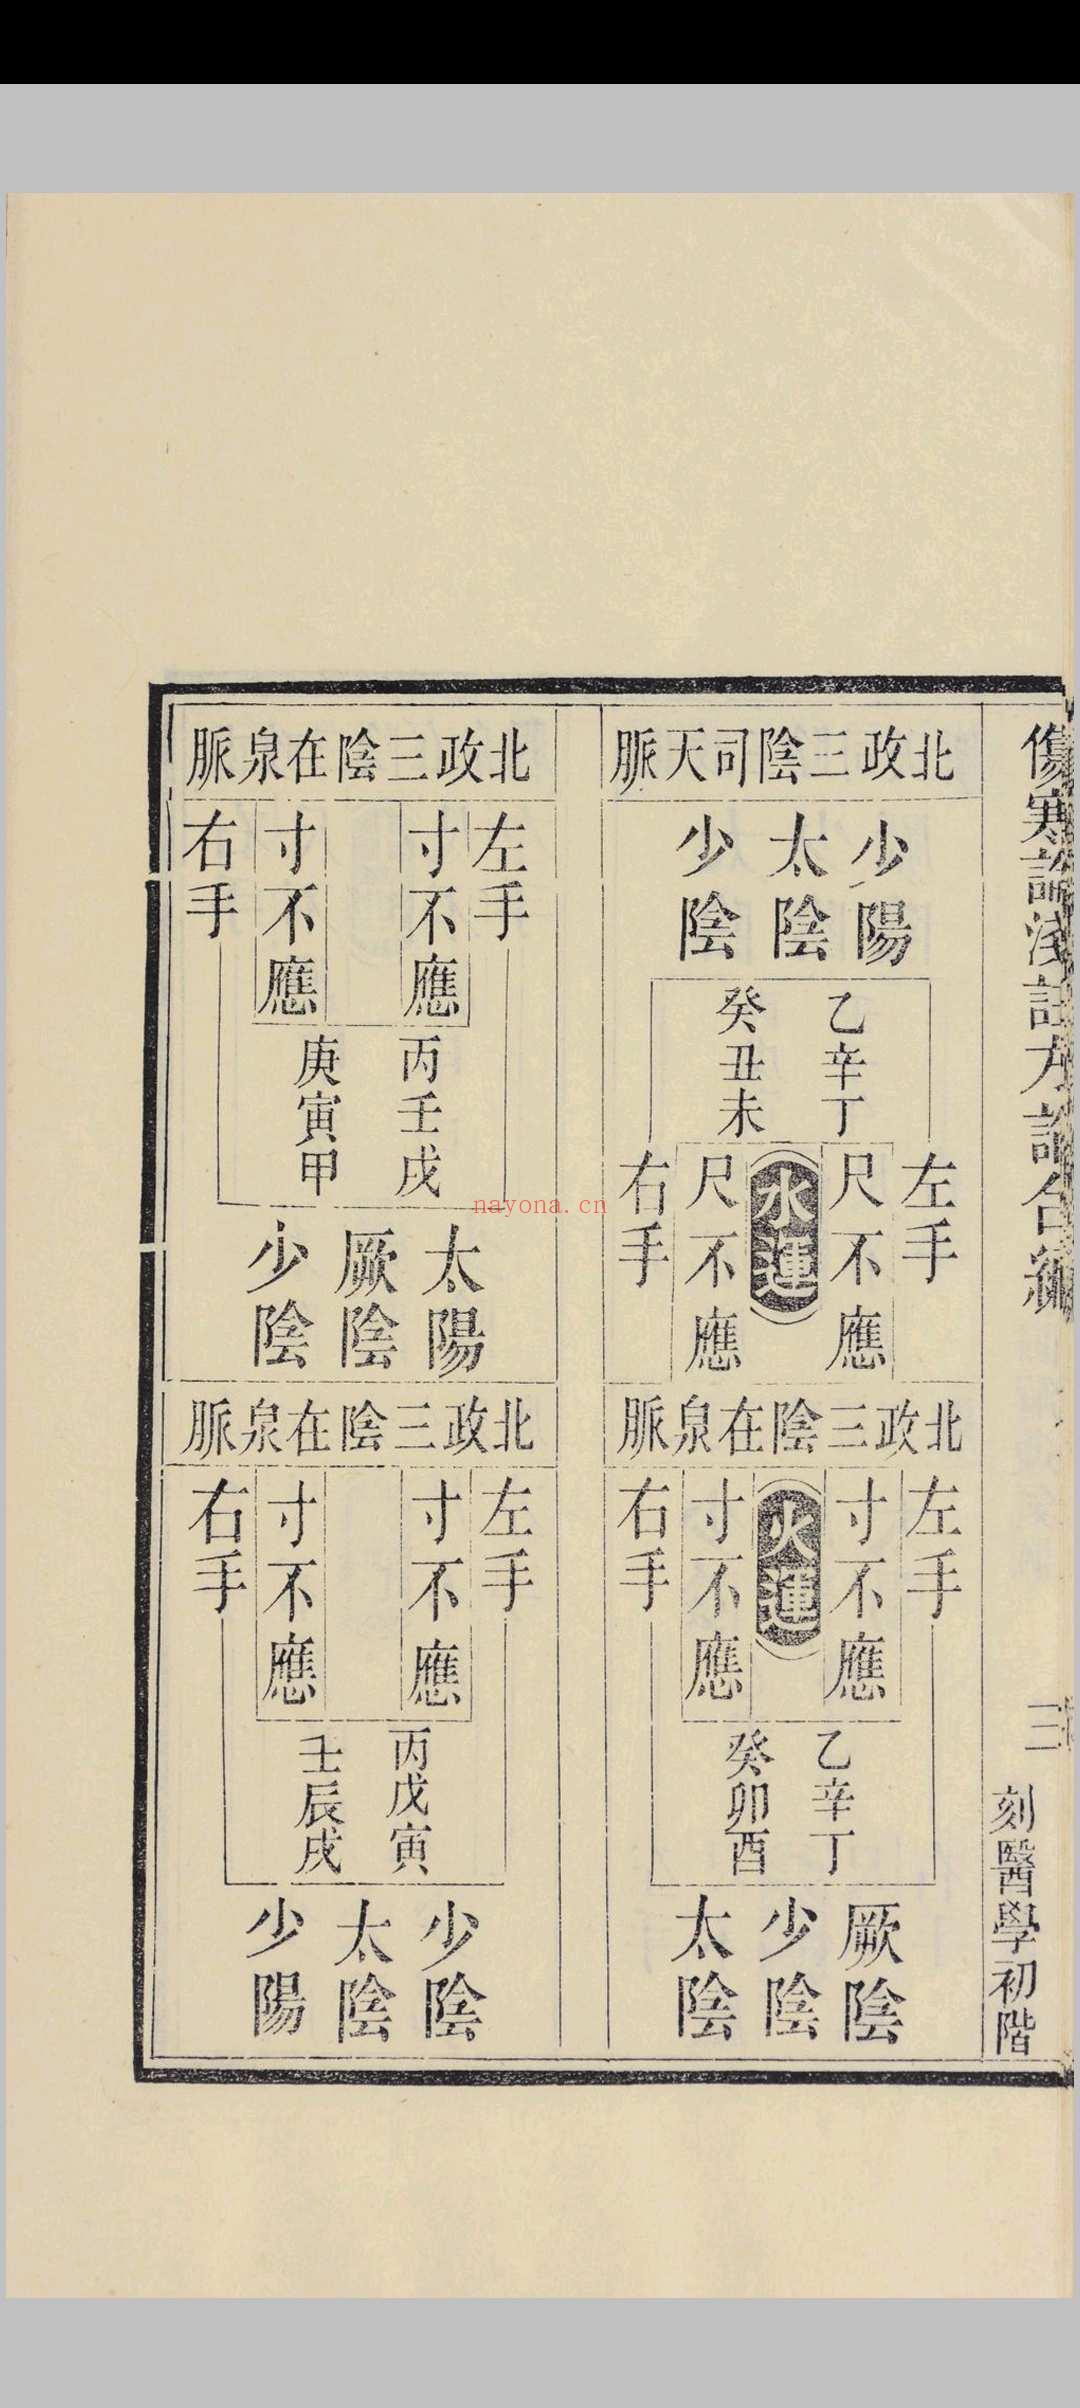 傷寒論淺註方論合編
三
刻醫學初階
北政三陰司天脈
少陽
太陰
少陰
乙辛丁
癸丑未
左手
尺不應
水運
尺不應
右手
北政三陰在泉脈
左手
寸不應
火運
寸不應
右手
乙辛丁
癸卯酉
厥陰
少陰
太陰
北政三陰在泉脈
左手
寸不應
寸不應
右手
丙壬戌
庚寅甲
太陽
厥陰
少陰
北政三陰在泉脈
左手
寸不應
寸不應
右手
丙戊寅
壬辰戌
少陰
太陰
少陽
nayona.cn